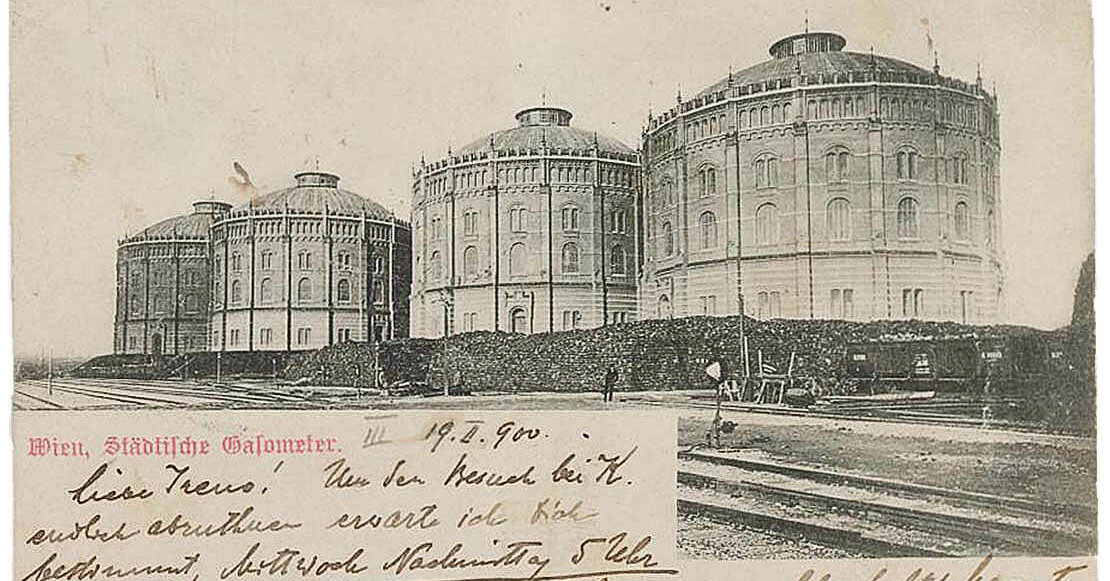 Wien, Städtische Gasometer. III 19.II.900.
Liebe Irene! Um den Besuch bei K.
endlich abzuthuen erwarte ich Dich
bestimmt, Mittwoch Nachmittag 5 Uhr